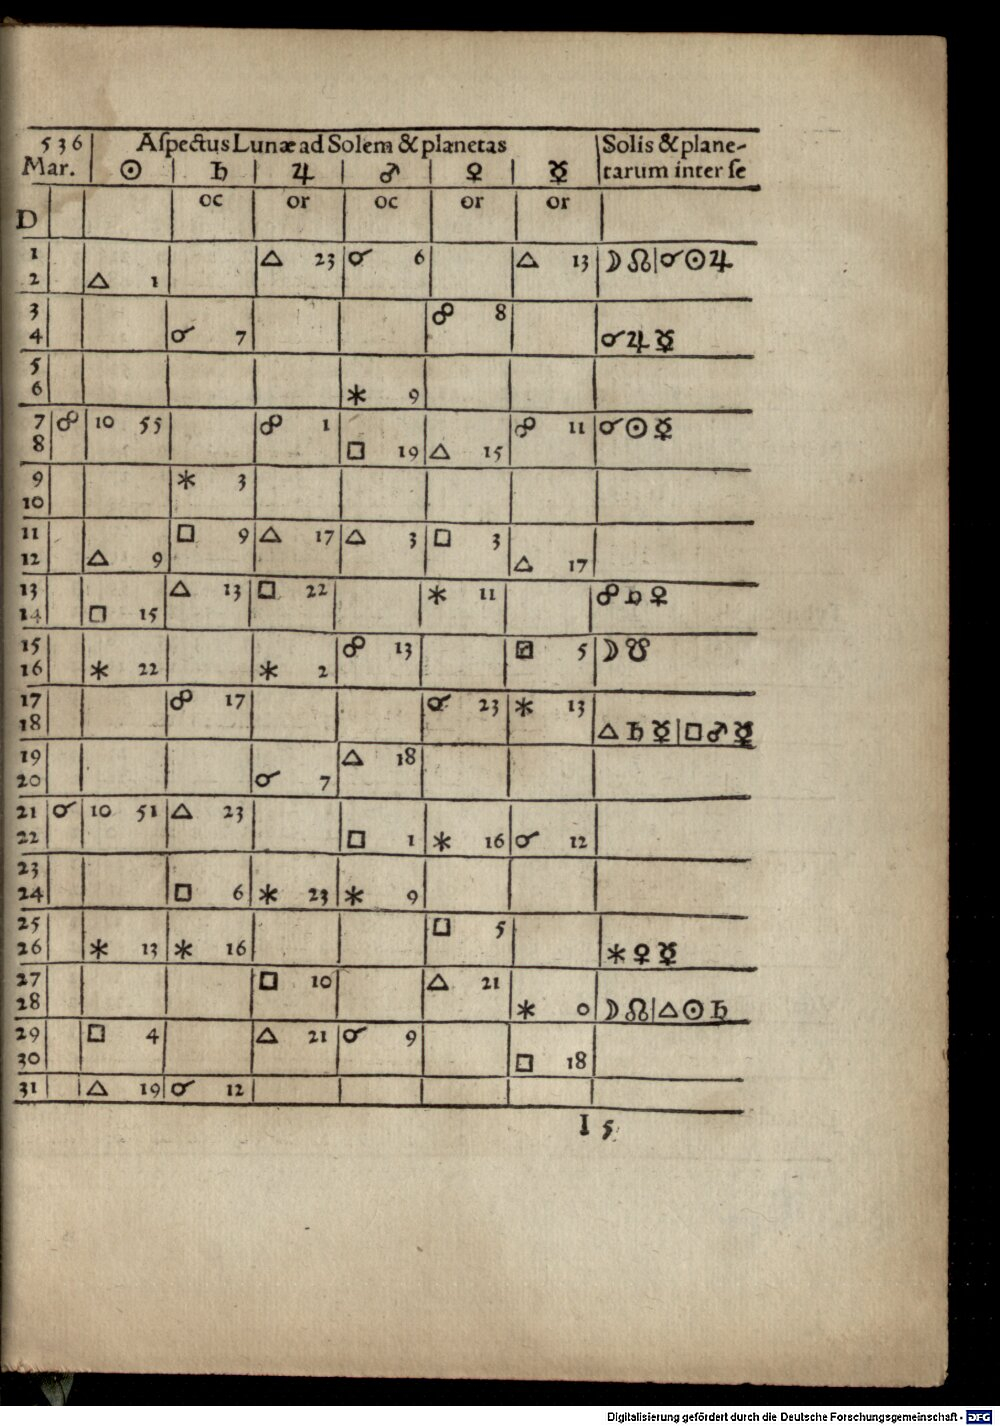 536 Aſpectus Lunæ ad Solem & planetas Solis & plane-
Mar. ☉ ♄ ♃ ♂ ♀ ☿ tarum inter ſe
D oc or oc or or
1 △ 23 ☌ 6 △ 13 ☽ ☊ | ☌ ☉ ♃
2 △ 1
3 ☍ 8
4 ☌ 7 ☌ ♃ ☿
5
6 ⚹ 9
7 ☍ 10 55 ☍ 1 ☍ 11 ☌ ☉ ☿
8 □ 19 △ 15
9 ⚹ 3
10
11 □ 9 △ 17 △ 3 □ 3
12 △ 9 △ 17
13 △ 13 □ 22 ⚹ 11 ☍ ♄ ♀
14 □ 15
15 ☍ 13 □ 5 ☽ ☋
16 ⚹ 22 ⚹ 2
17 ☍ 17 ☌ 23 ⚹ 13
18 △ ♄ ☿ | □ ♂ ☿
19 △ 18
20 ☌ 7
21 ☌ 10 51 △ 23
22 □ 1 ⚹ 16 ☌ 12
23
24 □ 6 ⚹ 23 ⚹ 9
25 □ 5
26 ⚹ 13 ⚹ 16 ⚹ ♀ ☿
27 □ 10 △ 21
28 ⚹ 0 ☽ ☊ | △ ☉ ♄
29 □ 4 △ 21 ☌ 9
30 □ 18
31 △ 19 ☌ 12
I 5
Digitalisierung gefördert durch die Deutsche Forschungsgemeinschaft - DFG